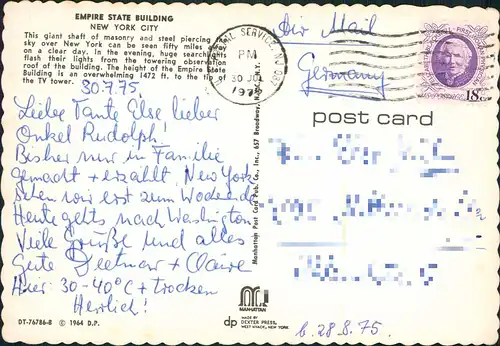 EMPIRE STATE BUILDING
NEW YORK CITY
This giant shaft of masonry and steel piercing the
sky over New York can be seen fifty miles away
on a clear day. In the evening, huge searchlights
flash their lights from the towering observation
roof of the building. The height of the Empire State
Building is an overwhelming 1472 ft. to the tip of
the TV tower.
30.7.75.
Liebe Tante Else lieber
Onkel Rudolph!
Bisher nur in Familie
gemacht + erzählt, New York
sehen wir erst zum Wochenende
Heute gehts nach Washington
Viele Grüße und alles
Gute Dietmar + Claire
Hier: 30-40°C + trocken
Herrlich!
DT-76786-B © 1964 D.P.
Manhattan Post Card Pub. Co., Inc., 657 Broadway, N.Y., N.Y.
MANHATTAN
dp MADE BY
DEXTER PRESS,
WEST NYACK, NEW YORK
Air Mail
Germany
POSTAL SERVICE, NY
PM
30 JUL
1975
18c
post card
b. 28.8.75.